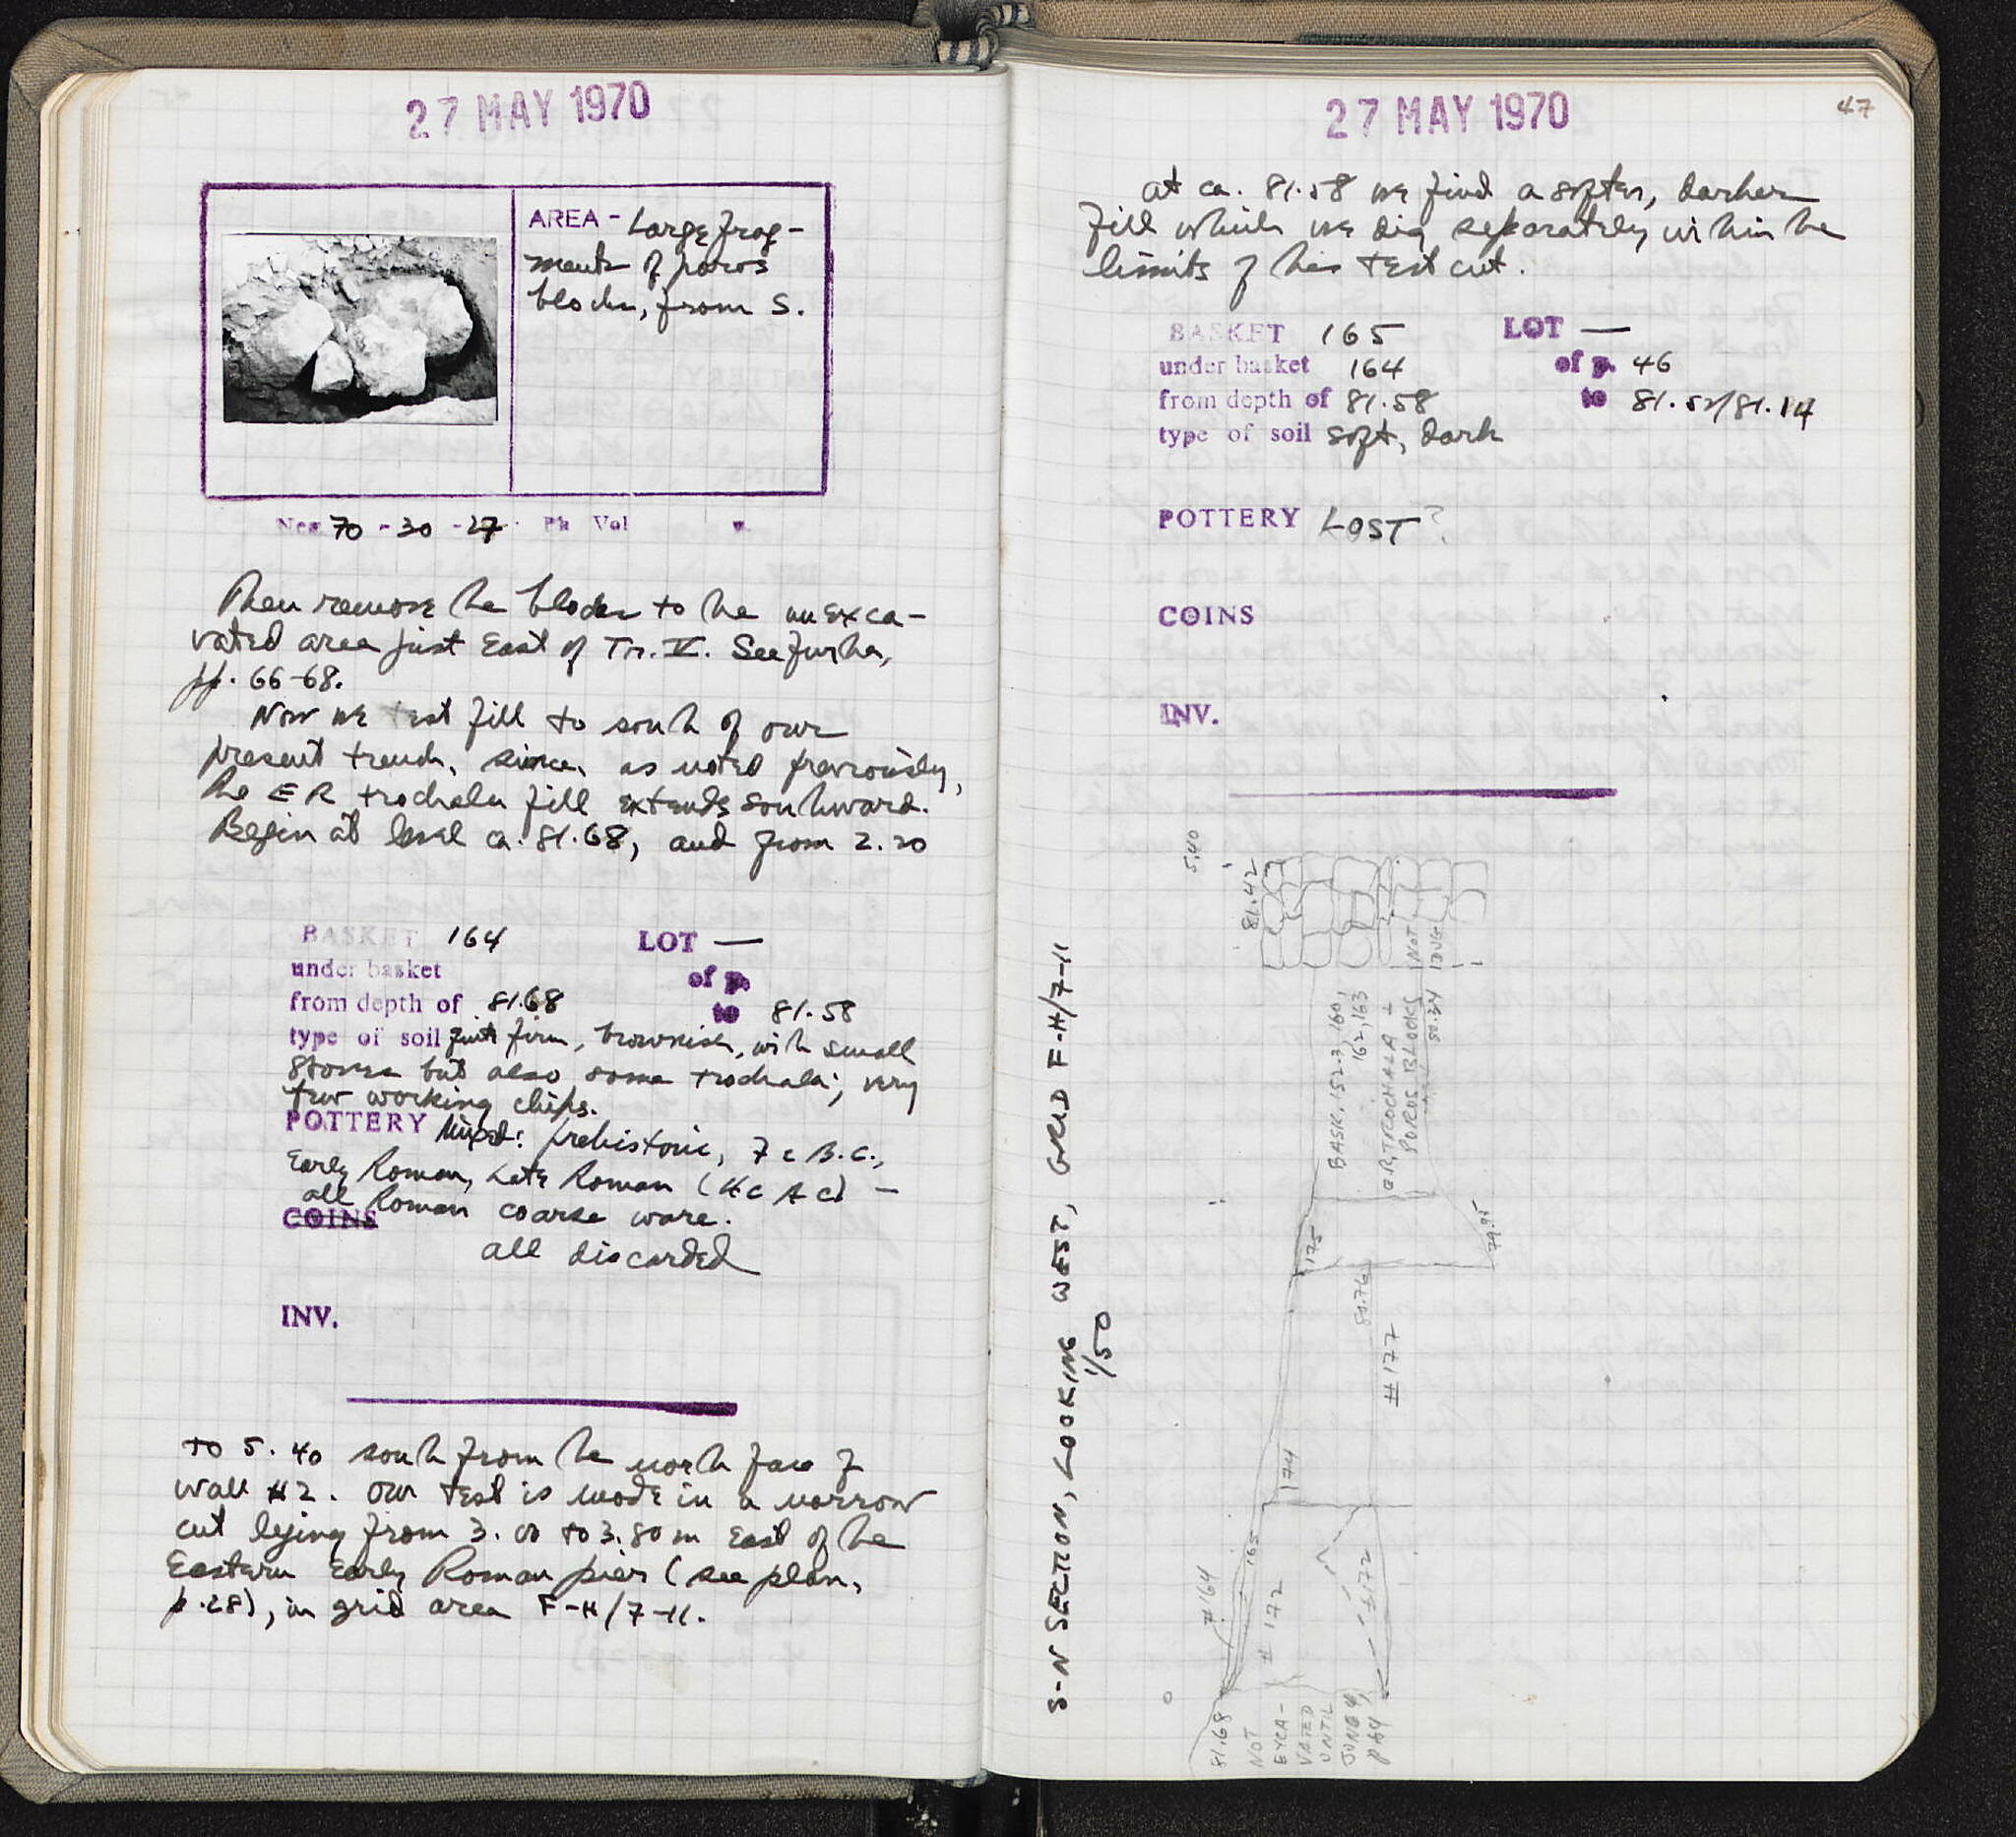 27 MAY 1970
AREA - Large frag-
ments of poros
blocks, from S.
Neg 70 - 30 - 27 Ph Vol p.
Then remove the blocks to the unexca-
vated area just East of Tr. V. See further,
pp. 66-68.
Now we test fill to south of our
present trench, since, as noted previously,
the ER trochala fill extends southward.
Begin at level ca. 81.68, and from 2.20
BASKET 164 LOT —
under basket of p.
from depth of 81.68 to 81.58
type of soil quite firm, brownish, with small
stones but also some trochala; very
few working chips.
POTTERY Mixed: prehistoric, 7 c B.C.,
Early Roman, Late Roman (4c AC) —
all Roman coarse ware.
COINS
all discarded
INV.
to 5.40 south from the north face of
wall #2. Our test is made in a narrow
cut lying from 3.00 to 3.80 m East of the
Eastern Early Roman pier (see plan,
p. 28), in grid area F-H/7-11.
27 MAY 1970
47
at ca. 81.58 we find a softer, darker
fill which we dig separately within the
limits of this test cut.
BASKET 165 LOT —
under basket 164 of p. 46
from depth of 81.58 to 81.52/81.14
type of soil soft, dark
POTTERY LOST?
COINS
INV.
S-N SECTION, LOOKING WEST, GRID F-H/7-11
1/50
5.40
81.42
NOT
DUG
BASK. 152-3, 160,
162, 163
ER TROCHALA +
POROS BLOCKS
80.34
175
79.95
80.76
#177
174
#164
165
#172
#172
0
81.68
NOT
EXCA-
VATED
UNTIL
JUNE 4,
P 64